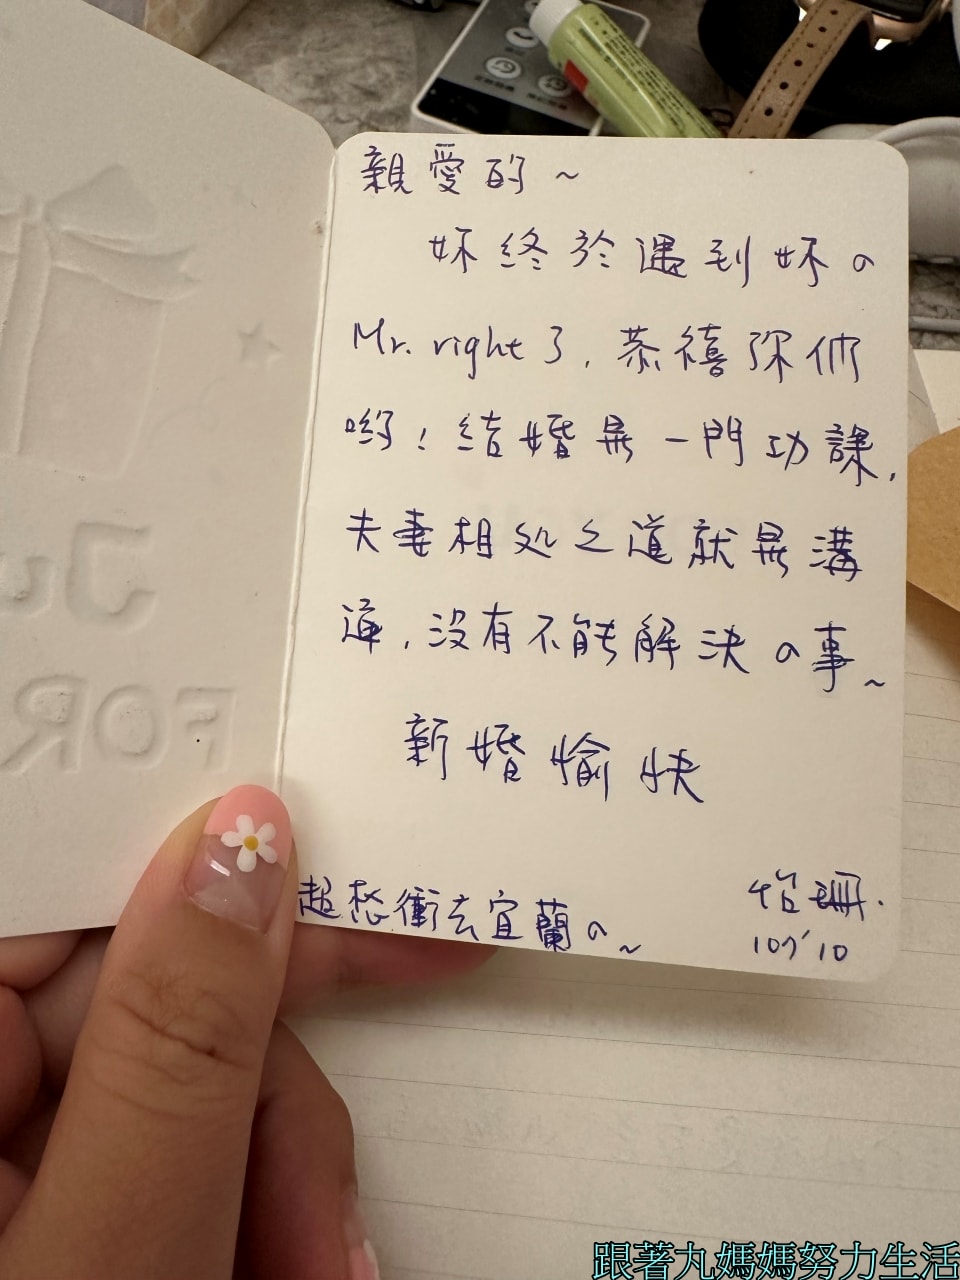 親愛的~
妳終於遇到妳の
Mr. right了，恭禧你們
喲！結婚是一門功課，
夫妻相处之道就是溝
通，沒有不能解決の事~
新婚愉快
超想衝去宜蘭の~
怡珊.
107' 10
JU
FOR
跟著九媽媽努力生活